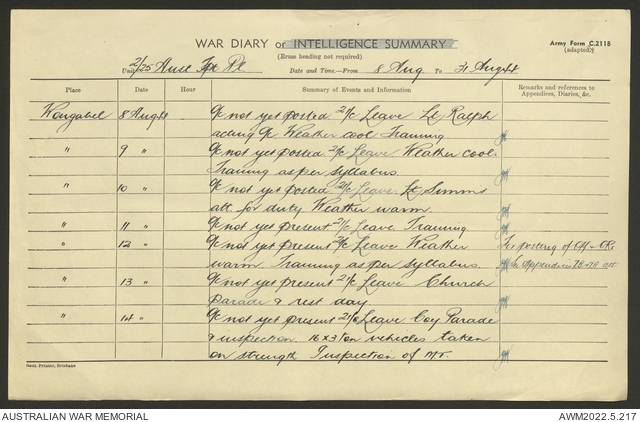 WAR DIARY or INTELLIGENCE SUMMARY
(Erase heading not required)
Army Form C.2118
(adapted)
Unit 2/25 Aust Tpt Pl
Date and Time—From 8 Aug To 31 Aug 44
Place Date Hour Summary of Events and Information Remarks and references to Appendices, Diaries, &c.
8 Aug 44 O/c not yet posted 2i/c Leave Lt Ralph
acting O/c Weather cool Training
" 9 " O/c not yet posted 2i/c Leave Weather cool
Training as per syllabus.
" 10 " O/c not yet posted 2i/c Leave Lt Simms
att. for duty Weather warm.
" 11 " O/c not yet present 2i/c Leave Training
" 12 " O/c not yet present 2i/c Leave Weather
warm. Training as per syllabus.
For posting of Off & ORs
see appendices
" 13 " O/c not yet present 2i/c Leave Church
parade & rest day.
" 14 " O/c not yet present 2i/c Leave Coy Parade
& inspection. 16 x 3 ton vehicles taken
on strength Inspection of MT.
Brisbane
AUSTRALIAN WAR MEMORIAL
AWM2022.5.217